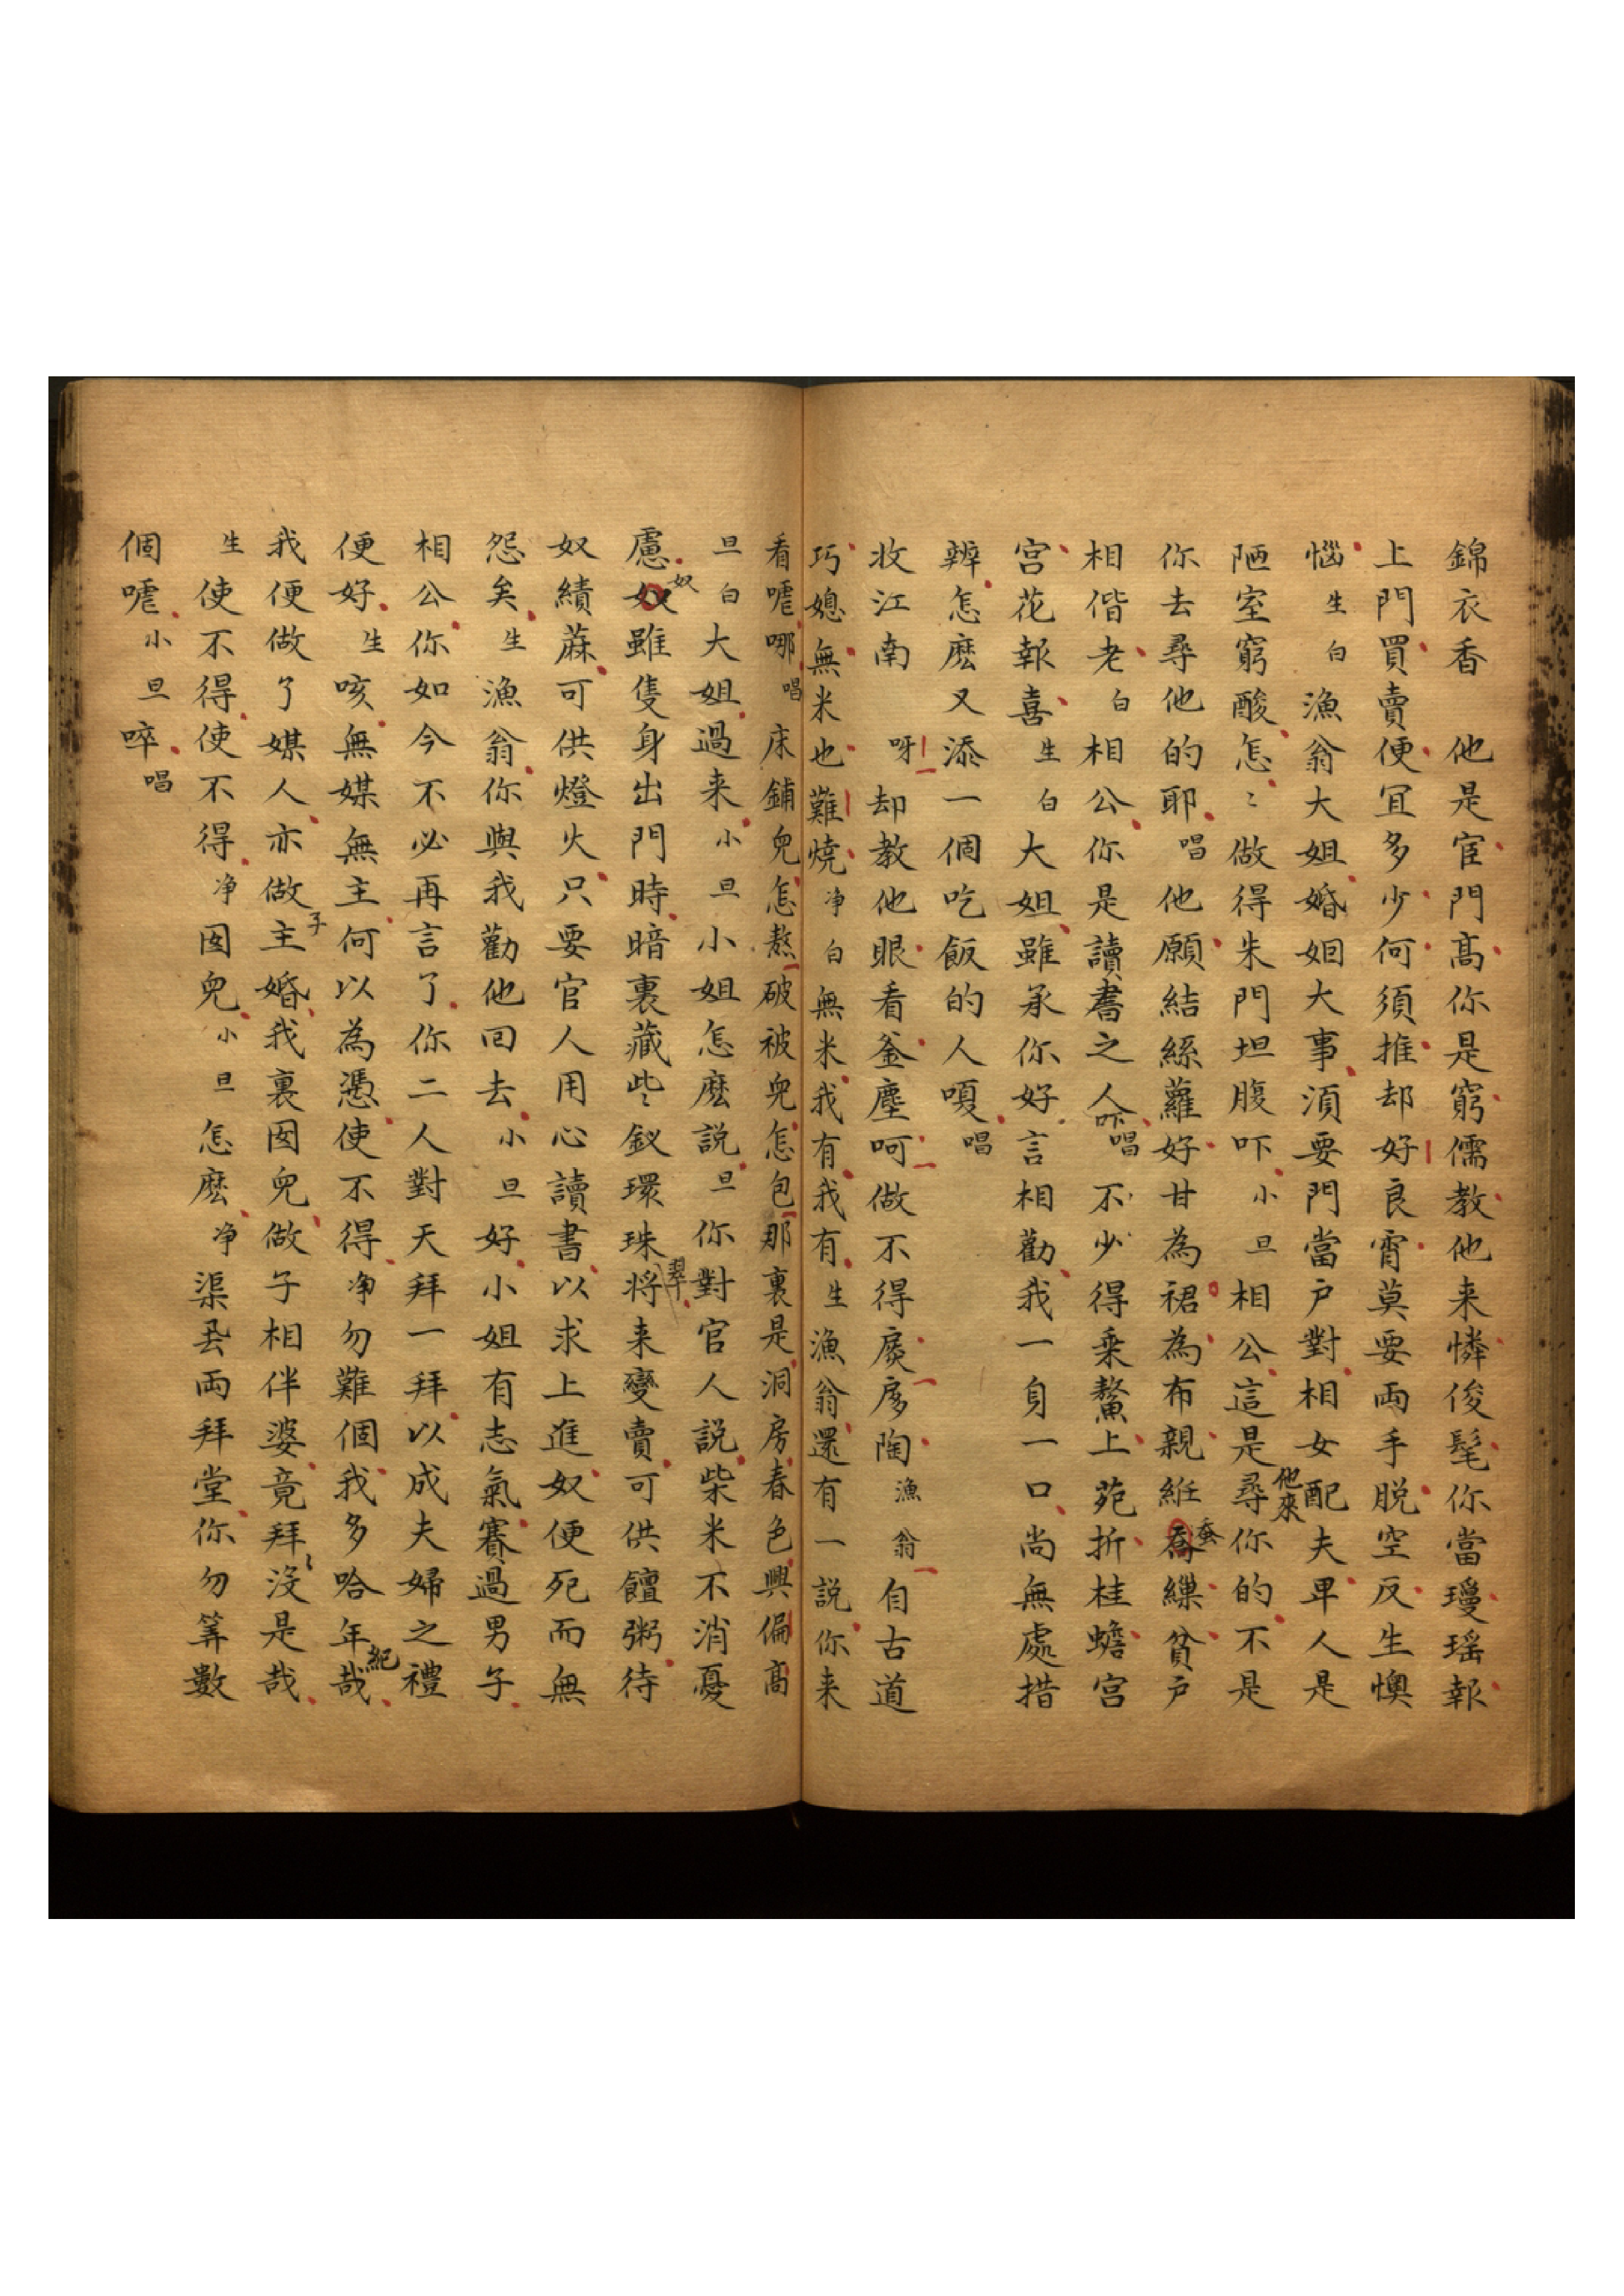 錦衣香　他是宦門高你是窮儒教他来憐俊髦你當瓊瑶報
上門買賣便宜多少何須推却好良宵莫要両手脱空反生懊
惱生白漁翁大姐婚姻大事湏要門當户對相女配夫早人是
陋室窮酸怎〻做得朱門坦腹吓小旦相公這是他來尋你的不是
你去尋他的耶唱他願結絲蘿好甘為裙為布親紝蚕繰貧戸
相偕老白相公你是讀書之人吓唱不少得乘鰲上苑折桂蟾宫
宫花報喜生白大姐雖承你好言相勸我一身一口尚無處措
辦怎麽又添一個吃飯的人嗄唱
收江南　呀却教他眼看釜塵呵做不得扊扅陶漁翁自古道
巧媳無米也難燒净白無米我有我有生漁翁還有一説你来
看嘘哪唱床鋪兒怎熬破被兒怎包那裏是洞房春色興偏高
旦白大姐過来小旦小姐怎麽説旦你對官人説柴米不消憂
慮奴雖隻身出門時暗裏藏些〻釵環珠翠将来變賣可供饘粥待
奴績蔴可供燈火只要官人用心讀書以求上進奴便死而無
怨矣生漁翁你與我勸他回去小旦好小姐有志氣賽過男子
相公你如今不必再言了你二人對天拜一拜以成夫婦之禮
便好生咳無媒無主何以為憑使不得净勿難個我多哈年紀哉
我便做了媒人亦做子主婚我裏囡兒做子相伴婆竟拜〻没是哉
生使不得使不得净囡兒小旦怎麽净渠厾両拜堂你勿筭數
個嘘小旦啐唱